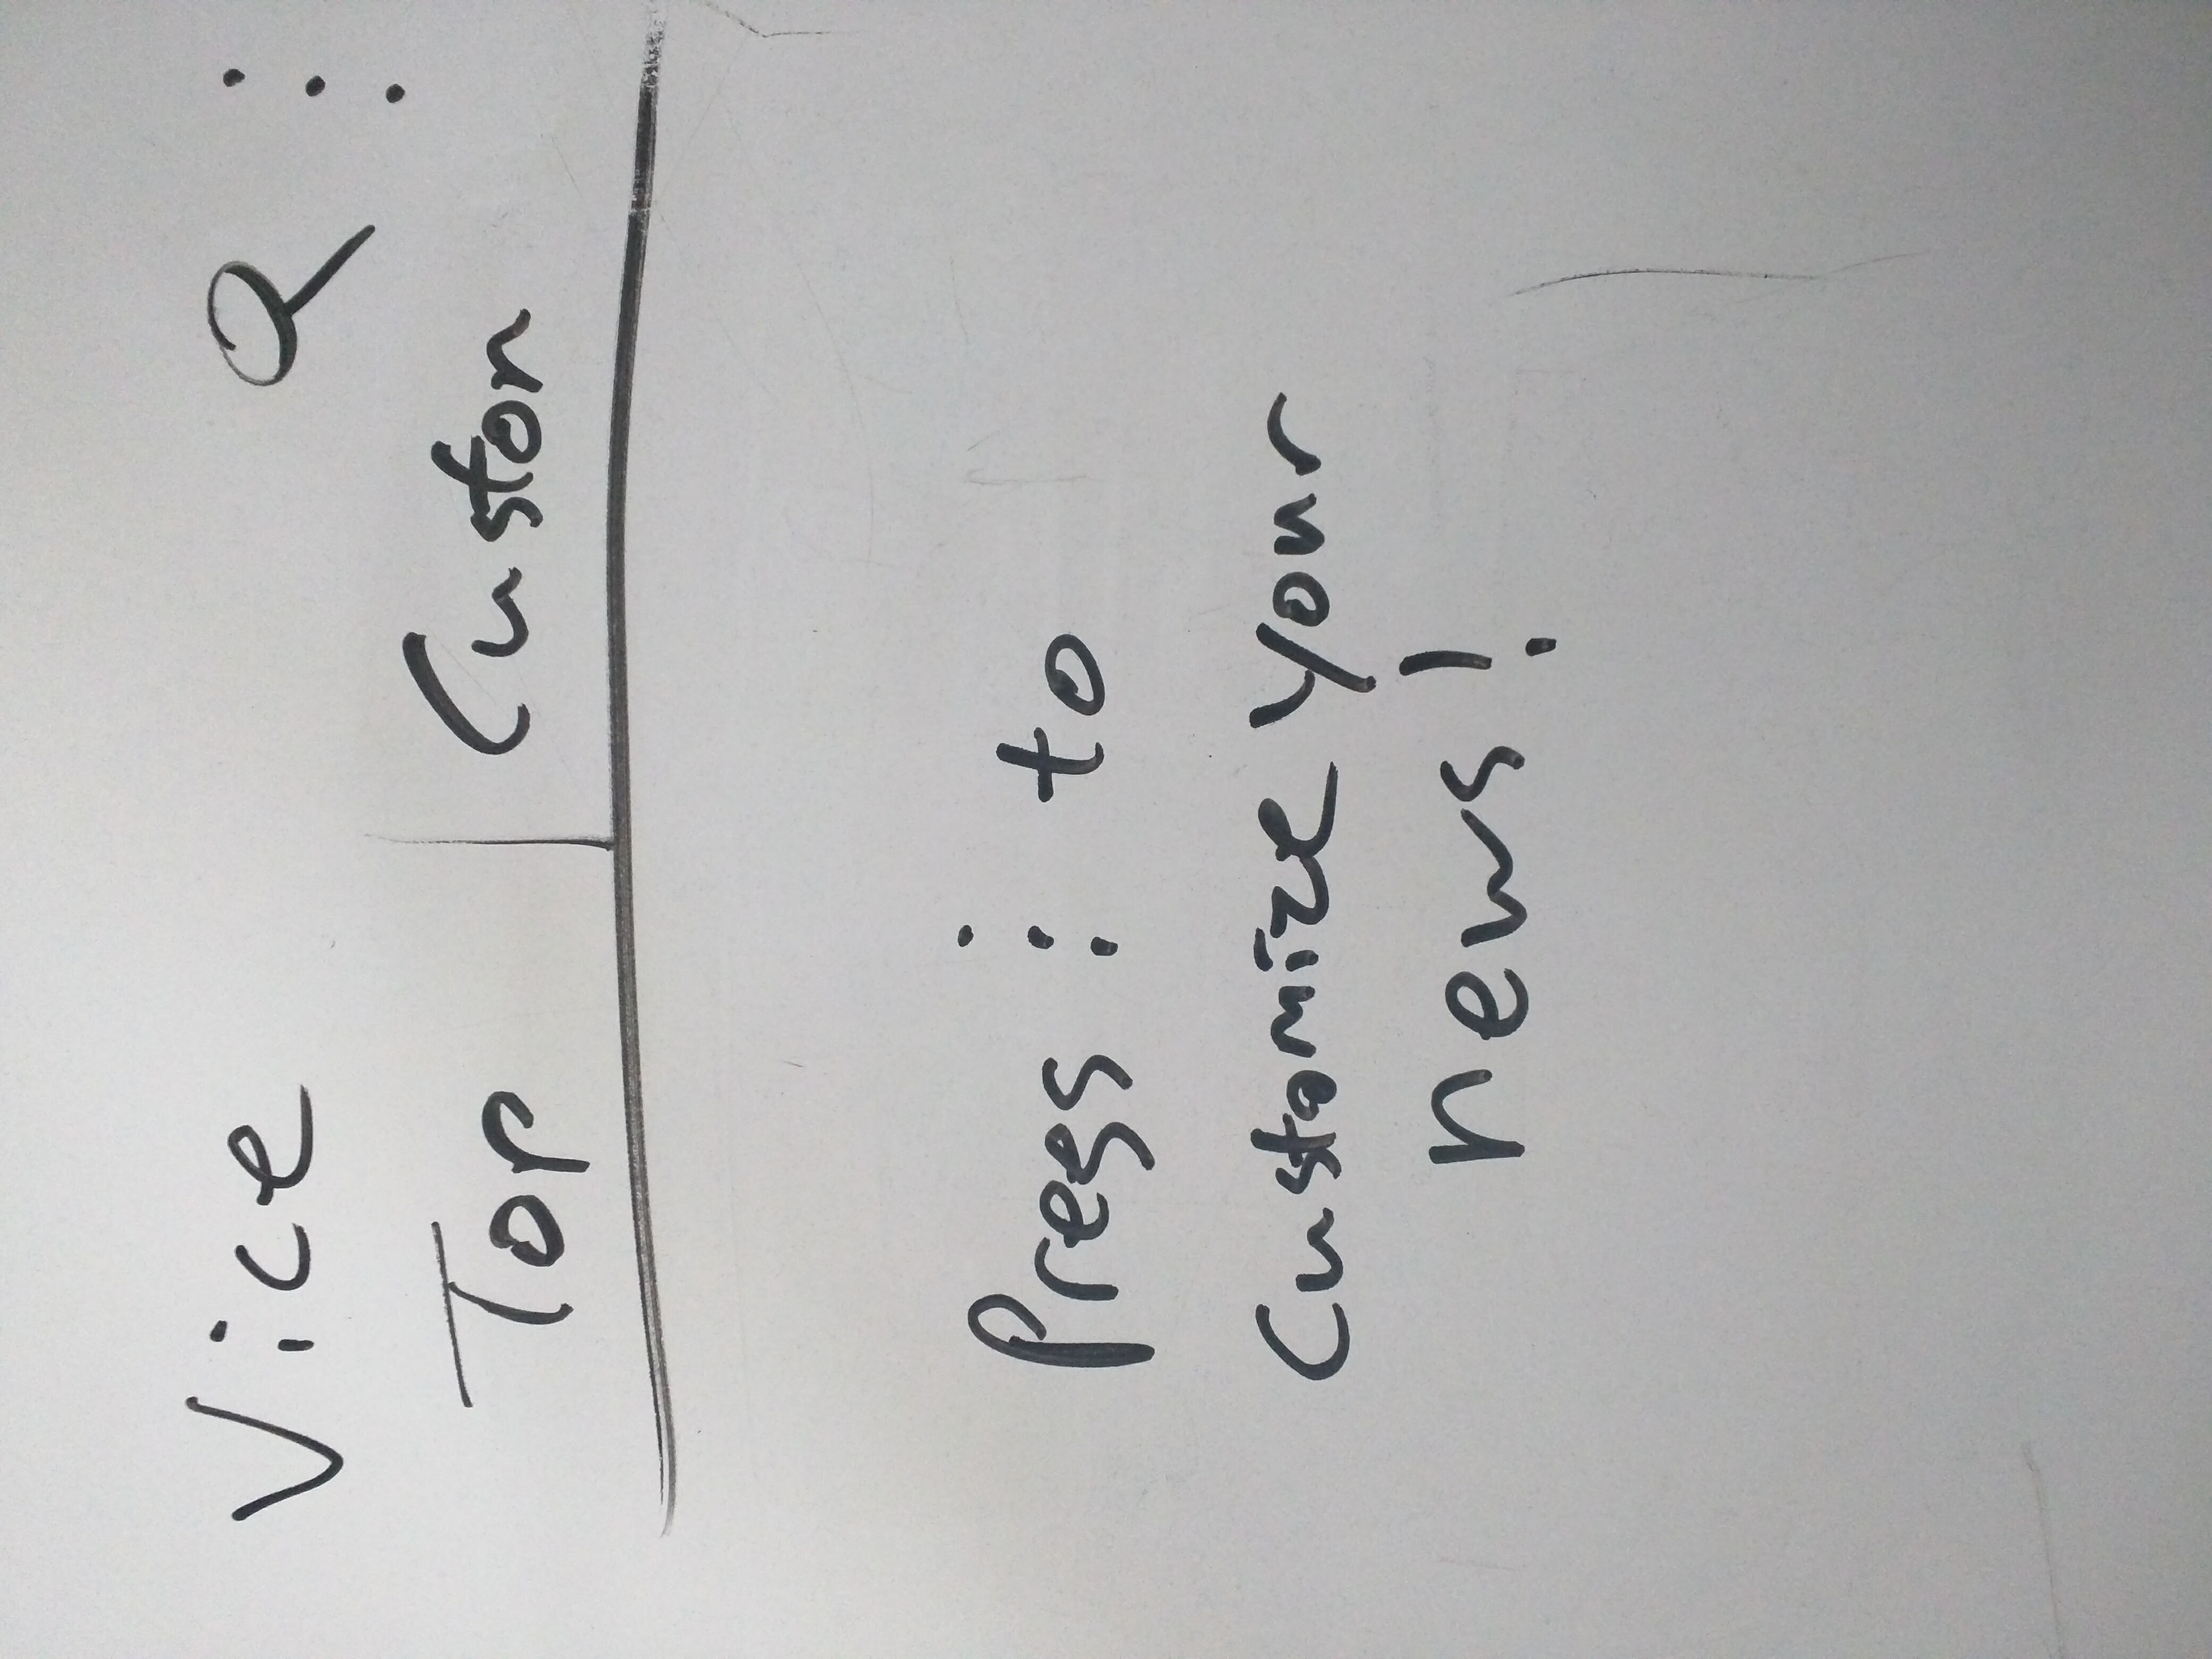 Vice
Top Custom
Press ⋮ to
Customize your
news!